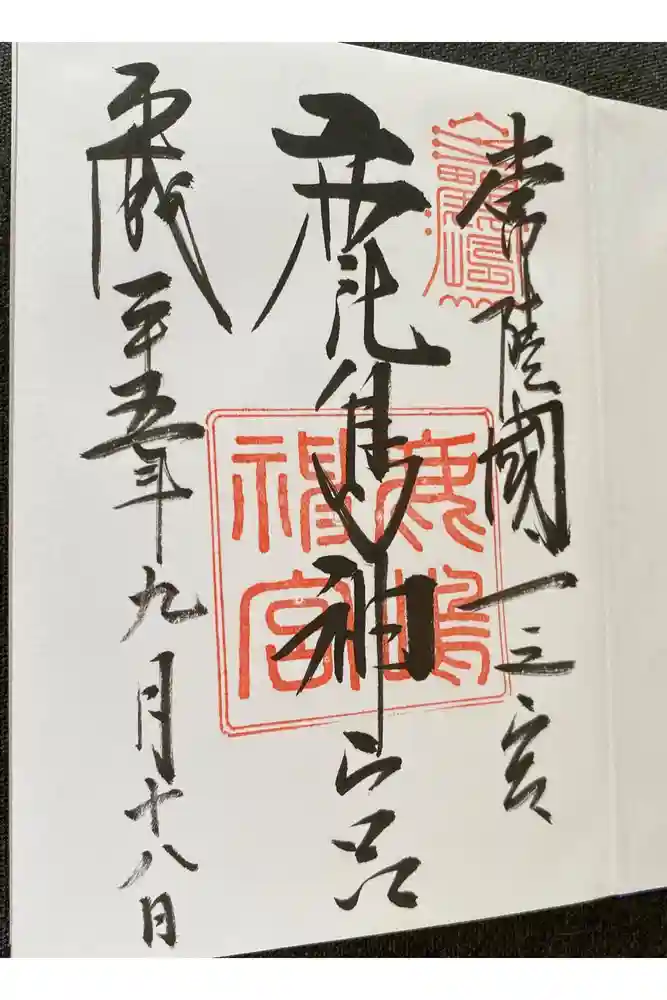 常陸國一之宮
鹿島神宮
平成二十五年九月十八日
鹿嶋
神宮